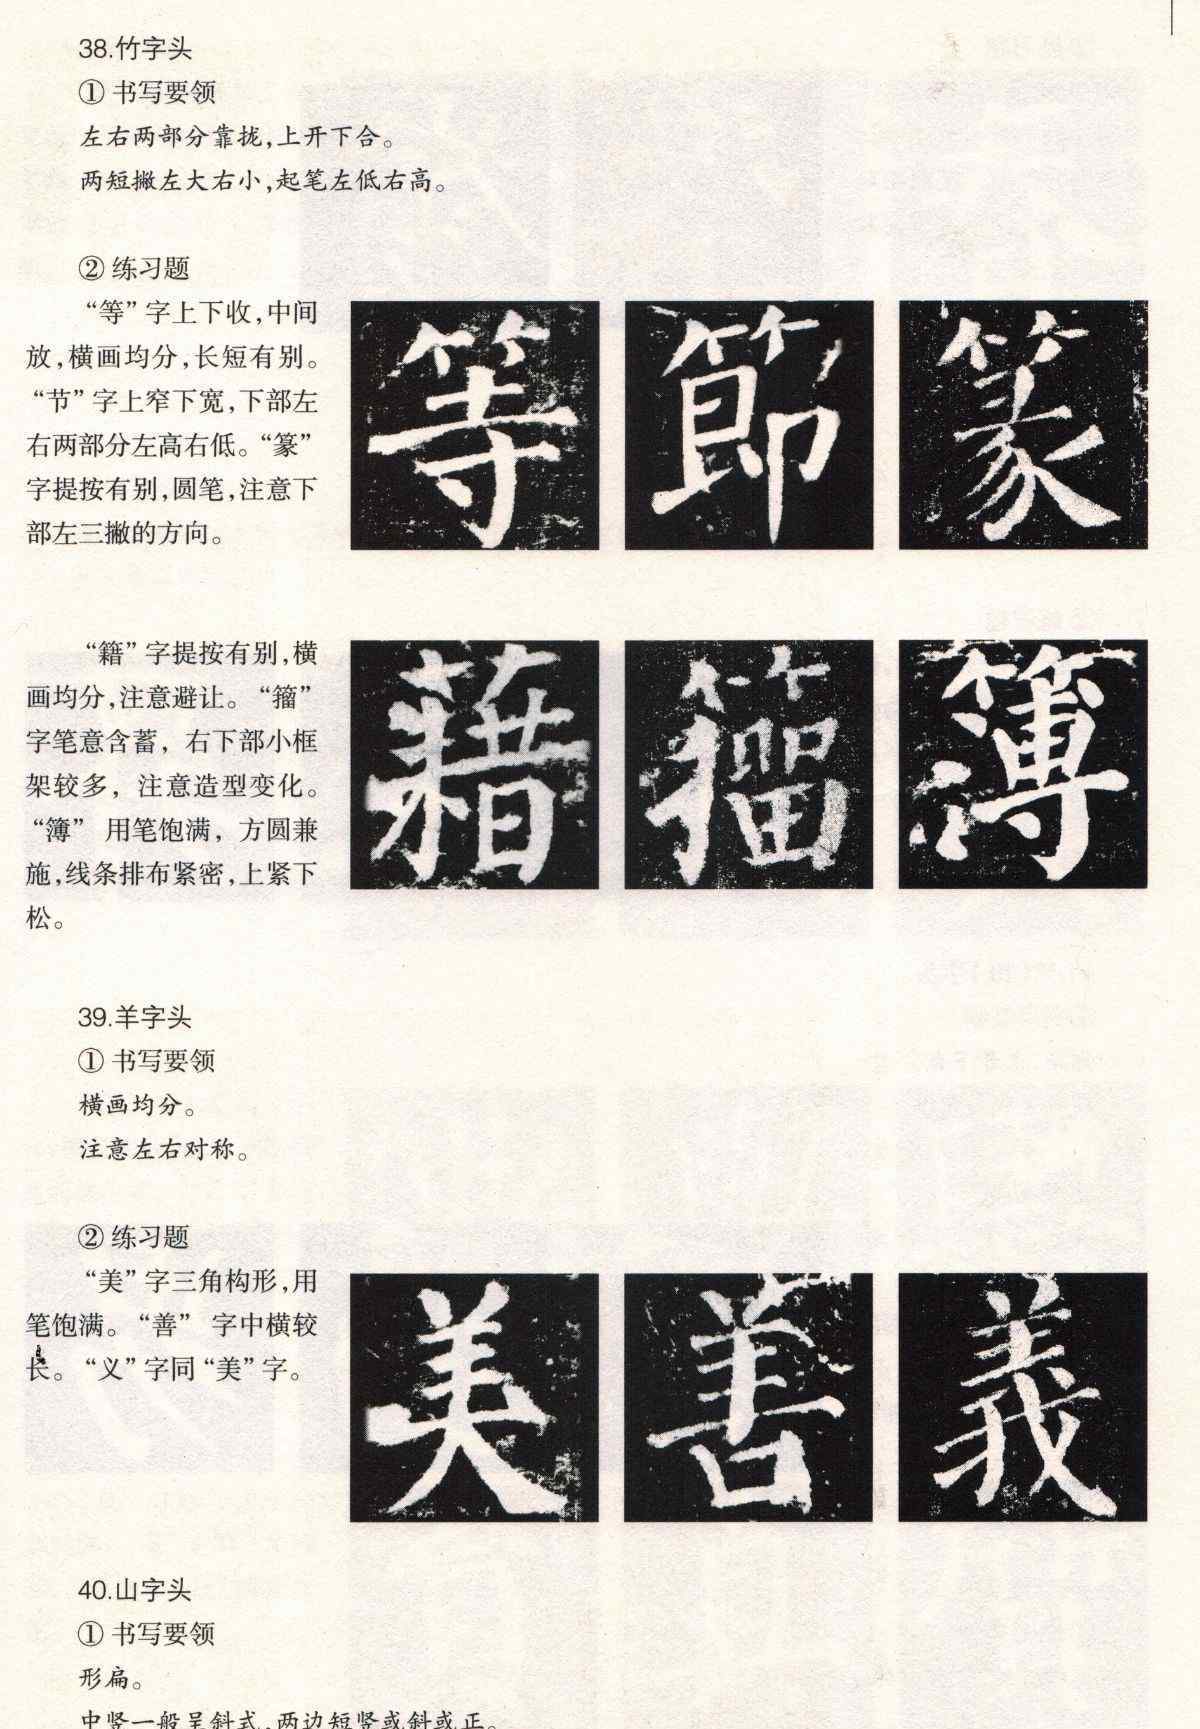 38.竹字头
① 书写要领
左右两部分靠拢,上开下合。
两短撇左大右小,起笔左低右高。
② 练习题
“等”字上下收,中间
放,横画均分,长短有别。
“节”字上窄下宽,下部左
右两部分左高右低。“篆”
字提按有别,圆笔,注意下
部左三撇的方向。
等 節 篆
“籍”字提按有别,横
画均分,注意避让。“籀”
字笔意含蓄，右下部小框
架较多，注意造型变化。
“簿”用笔饱满，方圆兼
施,线条排布紧密,上紧下
松。
籍 籀 簿
39.羊字头
① 书写要领
横画均分。
注意左右对称。
② 练习题
“美”字三角构形,用
笔饱满。“善”字中横较
长。“义”字同“美”字。
美 善 義
40.山字头
① 书写要领
形扁。
中竖一般呈斜式,两边短竖或斜或正。